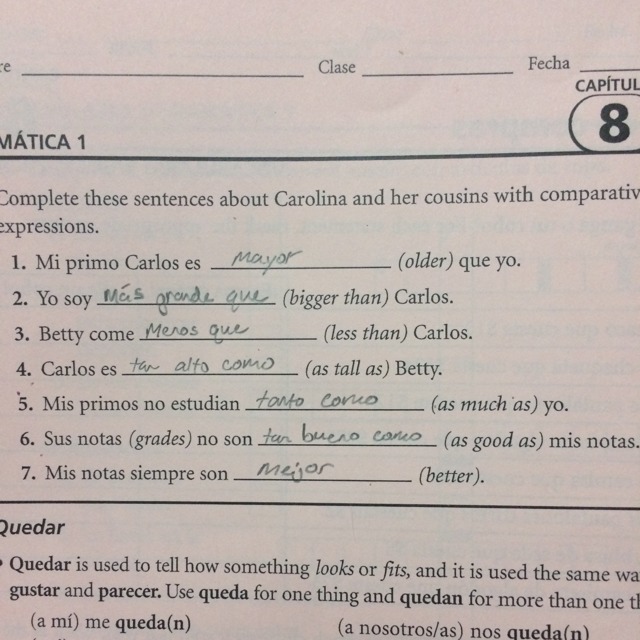 re ______ Clase ______ Fecha ______
CAPÍTUL
8
MÁTICA 1
Complete these sentences about Carolina and her cousins with comparativ
expressions.
1. Mi primo Carlos es mayor (older) que yo.
2. Yo soy Más grande que (bigger than) Carlos.
3. Betty come Menos que (less than) Carlos.
4. Carlos es tan alto como (as tall as) Betty.
5. Mis primos no estudian tanto como (as much as) yo.
6. Sus notas (grades) no son tan bueno como (as good as) mis notas.
7. Mis notas siempre son mejor (better).
Quedar
• Quedar is used to tell how something looks or fits, and it is used the same wa
gustar and parecer. Use queda for one thing and quedan for more than one th
(a mí) me queda(n) (a nosotros/as) nos queda(n)